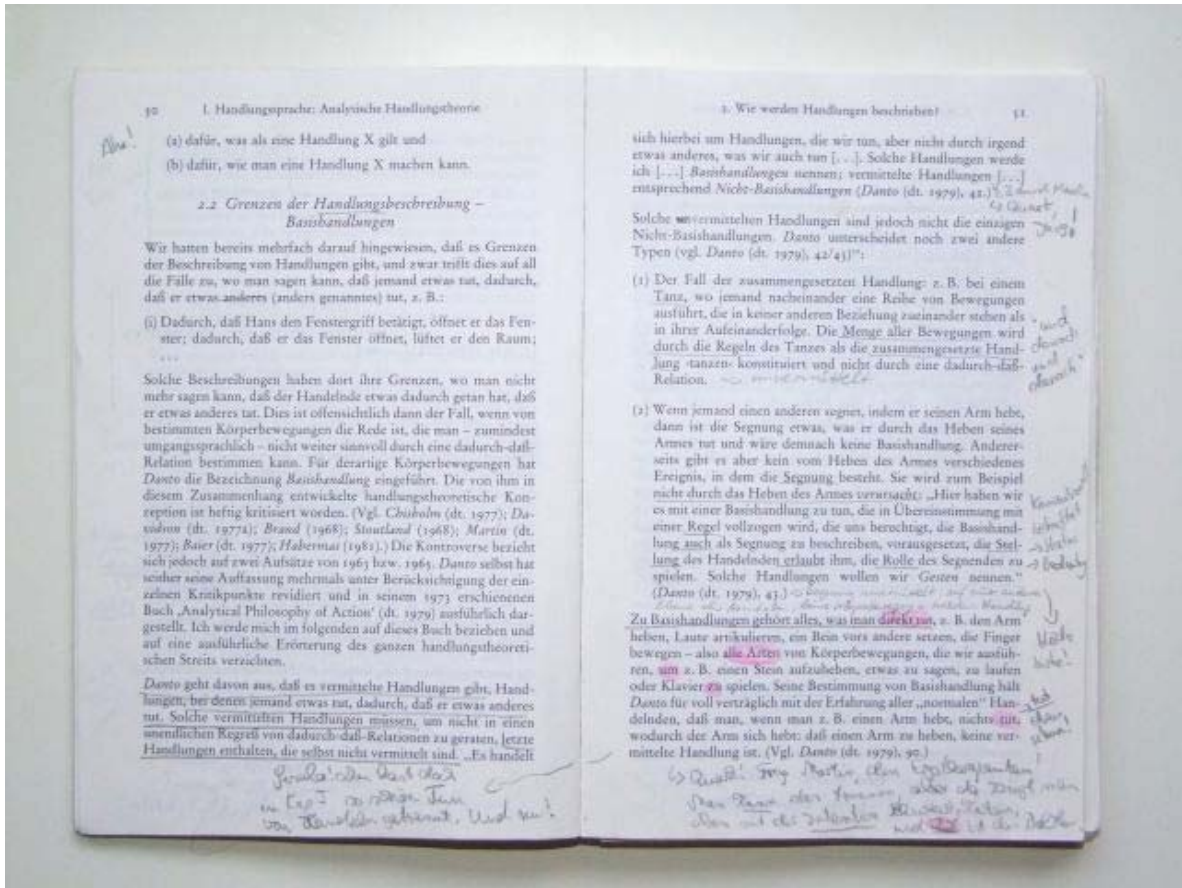 50 I. Handlungssprache: Analytische Handlungstheorie
(a) dafür, was als eine Handlung X gilt und
(b) dafür, wie man eine Handlung X machen kann.
2.2 Grenzen der Handlungsbeschreibung –
Basishandlungen
Wir hatten bereits mehrfach darauf hingewiesen, daß es Grenzen
der Beschreibung von Handlungen gibt, und zwar trifft dies auf all
die Fälle zu, wo man sagen kann, daß jemand etwas tut, dadurch,
daß er etwas anderes (anders genanntes) tut, z. B.:
(i) Dadurch, daß Hans den Fenstergriff betätigt, öffnet er das Fen-
ster; dadurch, daß er das Fenster öffnet, lüftet er den Raum;
...
Solche Beschreibungen haben dort ihre Grenzen, wo man nicht
mehr sagen kann, daß der Handelnde etwas dadurch getan hat, daß
er etwas anderes tat. Dies ist offensichtlich dann der Fall, wenn von
bestimmten Körperbewegungen die Rede ist, die man – zumindest
umgangssprachlich – nicht weiter sinnvoll durch eine dadurch-daß-
Relation bestimmen kann. Für derartige Körperbewegungen hat
Danto die Bezeichnung Basishandlung eingeführt. Die von ihm in
diesem Zusammenhang entwickelte handlungstheoretische Kon-
zeption ist heftig kritisiert worden. (Vgl. Chisholm (dt. 1977); Da-
vidson (dt. 1977a); Brand (1968); Stoutland (1968); Martin (dt.
1977); Baier (dt. 1977); Habermas (1981).) Die Kontroverse bezieht
sich jedoch auf zwei Aufsätze von 1963 bzw. 1965. Danto selbst hat
seither seine Auffassung mehrmals unter Berücksichtigung der ein-
zelnen Kritikpunkte revidiert und in seinem 1973 erschienenen
Buch ‚Analytical Philosophy of Action‘ (dt. 1979) ausführlich dar-
gestellt. Ich werde mich im folgenden auf dieses Buch beziehen und
auf eine ausführliche Erörterung des ganzen handlungstheoreti-
schen Streits verzichten.
Danto geht davon aus, daß es vermittelte Handlungen gibt, Hand-
lungen, bei denen jemand etwas tut, dadurch, daß er etwas anderes
tut. Solche vermittelten Handlungen müssen, um nicht in einen
unendlichen Regreß von dadurch-daß-Relationen zu geraten, letzte
Handlungen enthalten, die selbst nicht vermittelt sind. „Es handelt
2. Wie werden Handlungen beschrieben? 51
sich hierbei um Handlungen, die wir tun, aber nicht durch irgend
etwas anderes, was wir auch tun [...]. Solche Handlungen werde
ich [...] Basishandlungen nennen; vermittelte Handlungen [...]
entsprechend Nicht-Basishandlungen (Danto (dt. 1979), 42.)
Solche vermittelten Handlungen sind jedoch nicht die einzigen
Nicht-Basishandlungen. Danto unterscheidet noch zwei andere
Typen (vgl. Danto (dt. 1979), 42/43)“:
(1) Der Fall der zusammengesetzten Handlung: z. B. bei einem
Tanz, wo jemand nacheinander eine Reihe von Bewegungen
ausführt, die in keiner anderen Beziehung zueinander stehen als
in ihrer Aufeinanderfolge. Die Menge aller Bewegungen wird
durch die Regeln des Tanzes als die zusammengesetzte Hand-
lung ›tanzen‹ konstituiert und nicht durch eine dadurch-daß-
Relation.
(2) Wenn jemand einen anderen segnet, indem er seinen Arm hebt,
dann ist die Segnung etwas, was er durch das Heben seines
Armes tut und wäre demnach keine Basishandlung. Anderer-
seits gibt es aber kein vom Heben des Armes verschiedenes
Ereignis, in dem die Segnung besteht. Sie wird zum Beispiel
nicht durch das Heben des Armes verursacht: „Hier haben wir
es mit einer Basishandlung zu tun, die in Übereinstimmung mit
einer Regel vollzogen wird, die uns berechtigt, die Basishand-
lung auch als Segnung zu beschreiben, vorausgesetzt, die Stel-
lung des Handelnden erlaubt ihm, die Rolle des Segnenden zu
spielen. Solche Handlungen wollen wir Gesten nennen.“
(Danto (dt. 1979), 43.)
Zu Basishandlungen gehört alles, was man direkt tut, z. B. den Arm
heben, Laute artikulieren, ein Bein vors andere setzen, die Finger
bewegen – also alle Arten von Körperbewegungen, die wir ausfüh-
ren, um z. B. einen Stein aufzuheben, etwas zu sagen, zu laufen
oder Klavier zu spielen. Seine Bestimmung von Basishandlung hält
Danto für voll verträglich mit der Erfahrung aller „normalen“ Han-
delnden, daß man, wenn man z. B. einen Arm hebt, nichts tut,
wodurch der Arm sich hebt: daß einen Arm zu heben, keine ver-
mittelte Handlung ist. (Vgl. Danto (dt. 1979), 90.)